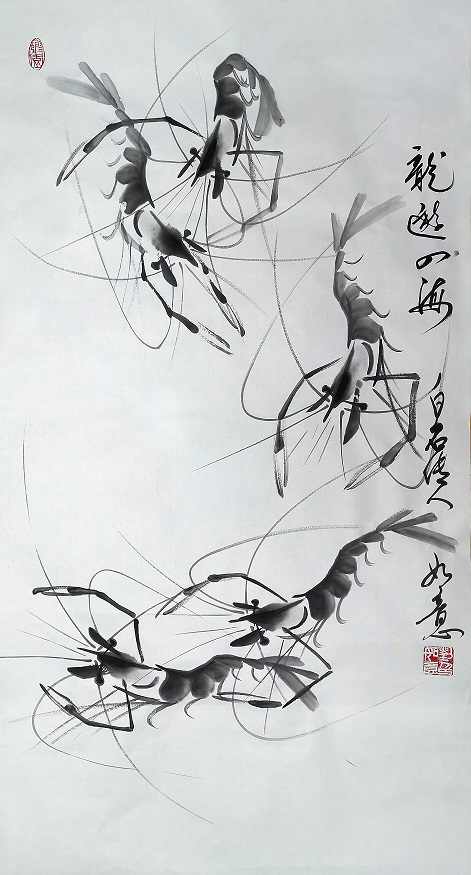 龍遊四海 白石传人 如意